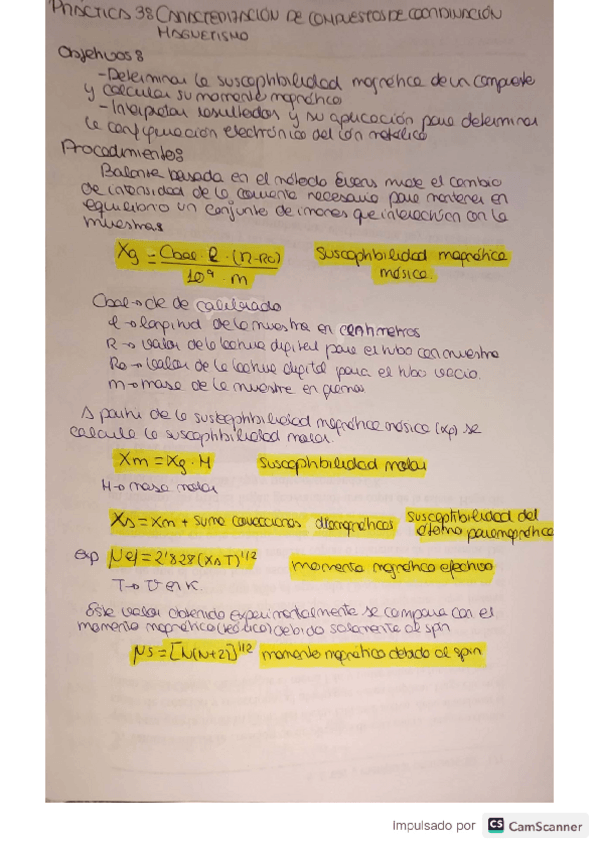 PRACTICA 3: CARACTERIZACIÓN DE COMPUESTOS DE COORDINACIÓN
MAGNETISMO
Objetivos:
-Determinar la susceptibilidad magnética de un compuesto
y calcular su momento magnético
-Interpretar resultados y su aplicación para determinar
la configuración electrónica del ión metálico
Procedimientos
Balanza basada en el método Evans mide el cambio
de intensidad de la corriente necesario para mantener en
equilibrio un conjunto de imanes que interactúan con la
muestra
Xg = Cbal · l · (R-Ro) / 10⁹ · m    Susceptibilidad magnética
másica.
Cbal → cte de calibrado
l → longitud de la muestra en centímetros
R → valor de la lectura digital para el tubo con muestra
Ro → valor de la lectura digital para el tubo vacío.
m → masa de la muestra en gramos
A partir de la susceptibilidad magnética másica (Xg) se
calcula la susceptibilidad molar.
Xm = Xg · M    Susceptibilidad molar
M → masa molar
XA = Xm + suma correcciones diamagnéticas    susceptibilidad del
átomo paramagnético
exp μef = 2'828 (XA T)^1/2    momento magnético efectivo
T → en K
Este valor obtenido experimentalmente se compara con el
momento magnético (teórico) debido solamente al spin
μs = [N(N+2)]^1/2    momento magnético debido al spin
Impulsado por CS CamScanner